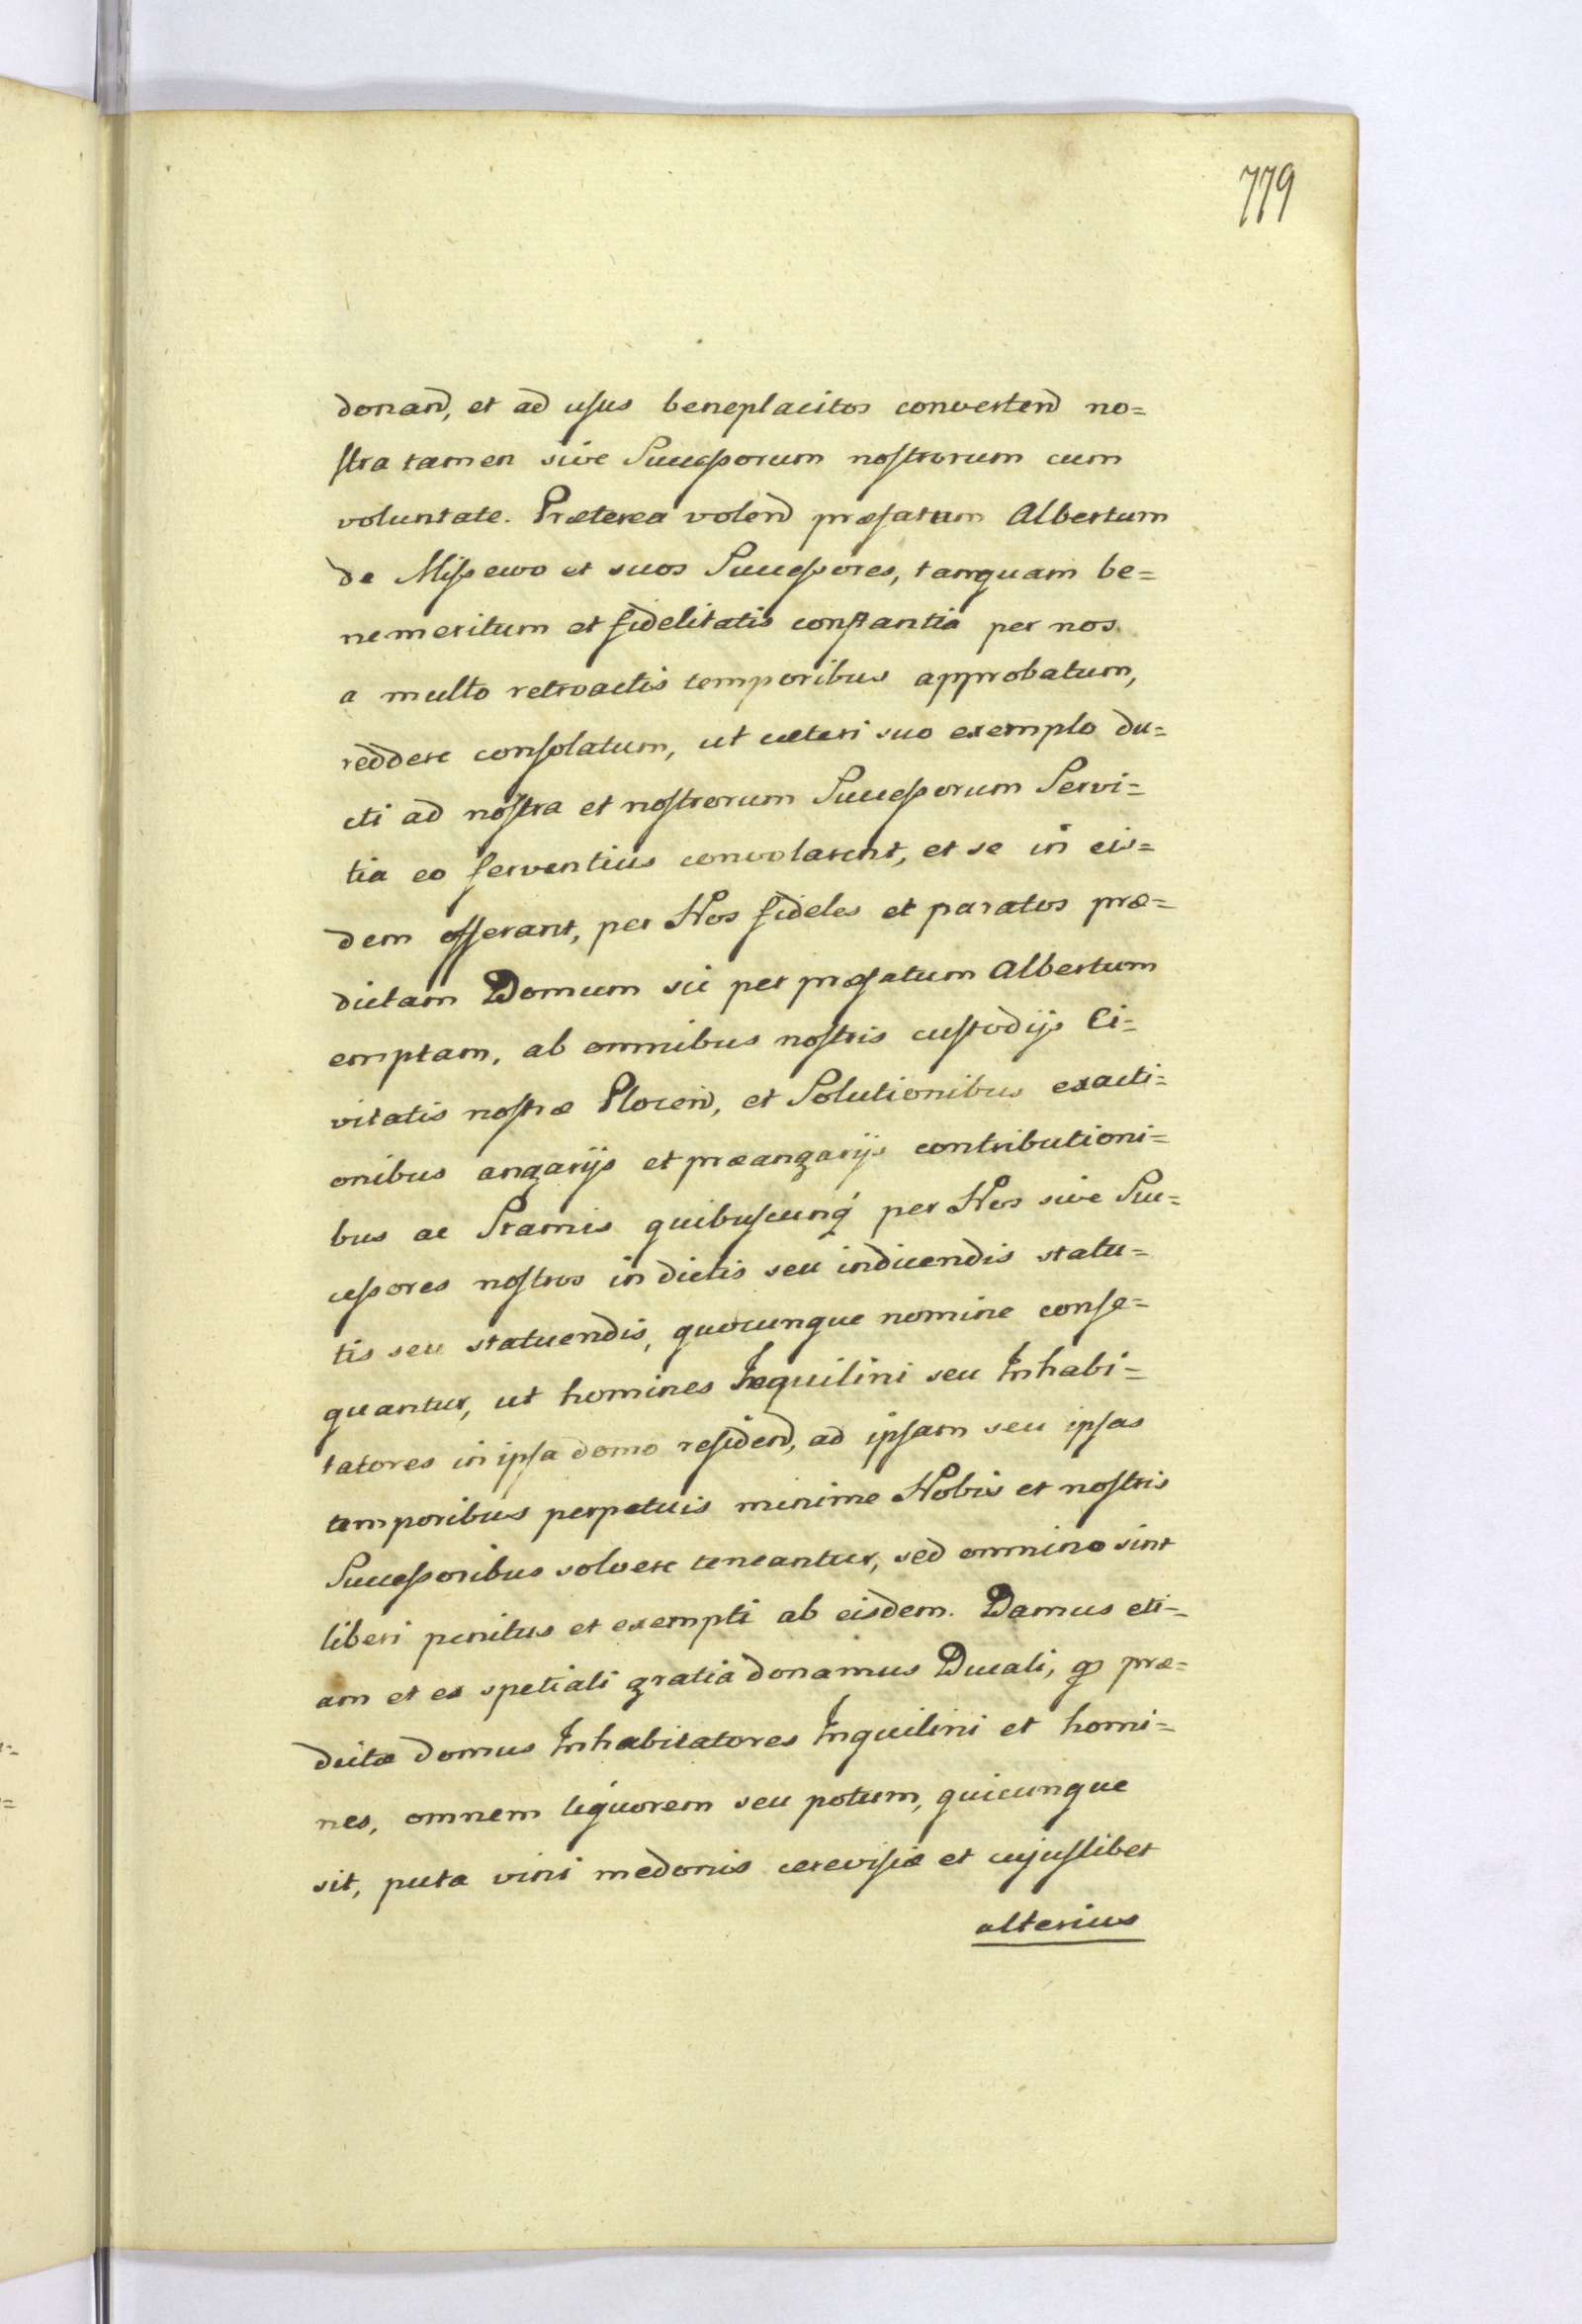 779
donand, et ad usus beneplacitos convertend no=
stra tamen sive Successorum nostrorum cum
voluntate. Præterea volend præfatum Albertum
de Missewo et suos Successores, tanquam be=
nemeritum et fidelitatis constantia per nos
a multo retroactis temporibus approbatum,
reddere consolatum, ut cæteri suo exemplo du=
cti ad nostra et nostrorum Successorum Servi=
tia eo ferventius convolarent, et se in eis=
dem offerant, per Nos fideles et paratos præ=
dictam Domum sic per præfatum Albertum
emptam, ab omnibus nostris custodijs Ci=
vitatis nostræ Plocen, et Solutionibus exacti=
onibus angarijs et præangarijs contributioni=
bus ac Stamis quibuscunq per Nos sive Suc=
cessores nostros in dictis seu indicendis statu=
tis seu statuendis, quocunque nomine conse=
quantur, ut homines Inquilini seu Inhabi=
tatores in ipsa domo residend, ad ipsam seu ipsas
temporibus perpetuis minime Nobis et nostris
Successoribus solvere teneantur, sed omnino sint
liberi penitus et exempti ab eisdem. Damus eti=
am et ex spetiali gratia donamus Ducali, qd præ=
dictæ domus Inhabitatores Inquilini et homi=
nes, omnem liquorem seu potum, quicunque
sit, puta vini medonis cerevisiæ et cujuslibet
alterius